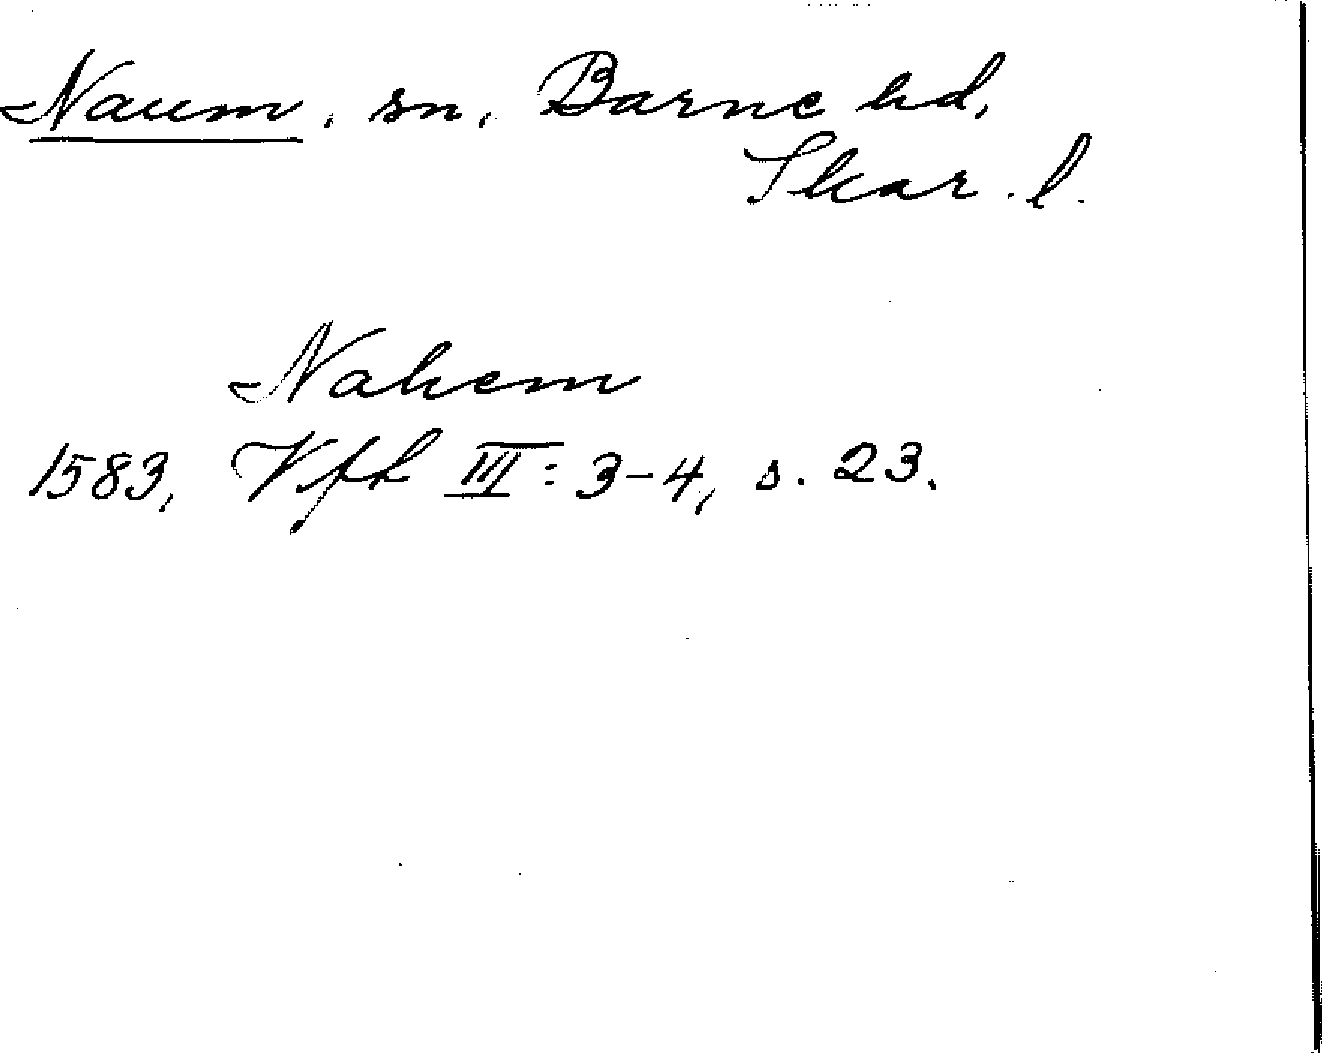 Naum, sn, Barne hd,
Skar. l.
Nahem
1583, Vfh III: 3-4, s. 23.